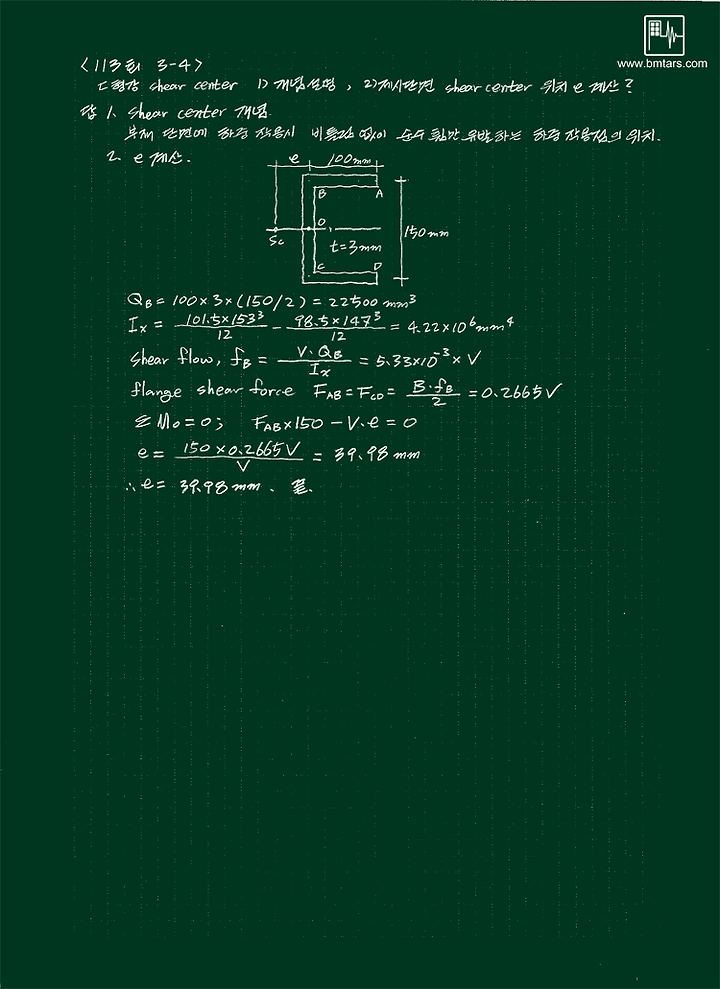 www.bmtars.com
<113회 3-4>
ㄷ형강 shear center 1) 개념설명, 2) 제시단면 shear center 위치 e 계산?
답 1. shear center 개념.
부재 단면에 하중 작용시 비틀림 없이 순수 휨만 유발하는 하중 작용점의 위치.
2. e 계산.
e 100mm
B A
O
Sc
t=3mm
150mm
C D
Q_B = 100×3×(150/2) = 22500 mm³
I_x = 101.5×153³/12 - 98.5×147³/12 = 4.22×10⁶mm⁴
shear flow, f_B = V·Q_B/I_x = 5.33×10⁻³×V
flange shear force F_AB = F_CD = B·f_B/2 = 0.2665V
ΣM_O=0; F_AB×150 - V·e = 0
e = 150×0.2665V/V = 39.98 mm
∴ e = 39.98mm. 끝.